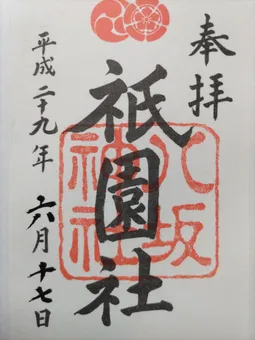 奉拝
祇園社
八坂神社
平成二十九年六月十七日